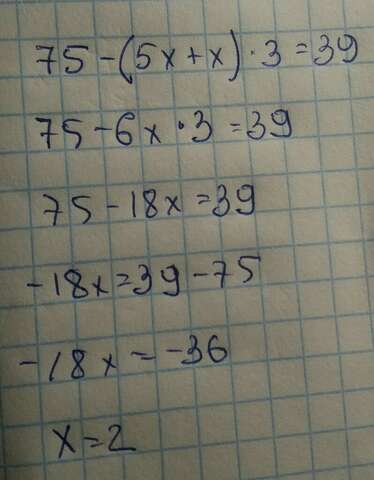 75-(5x+x)·3=39
75-6x·3=39
75-18x=39
-18x=39-75
-18x=-36
x=2